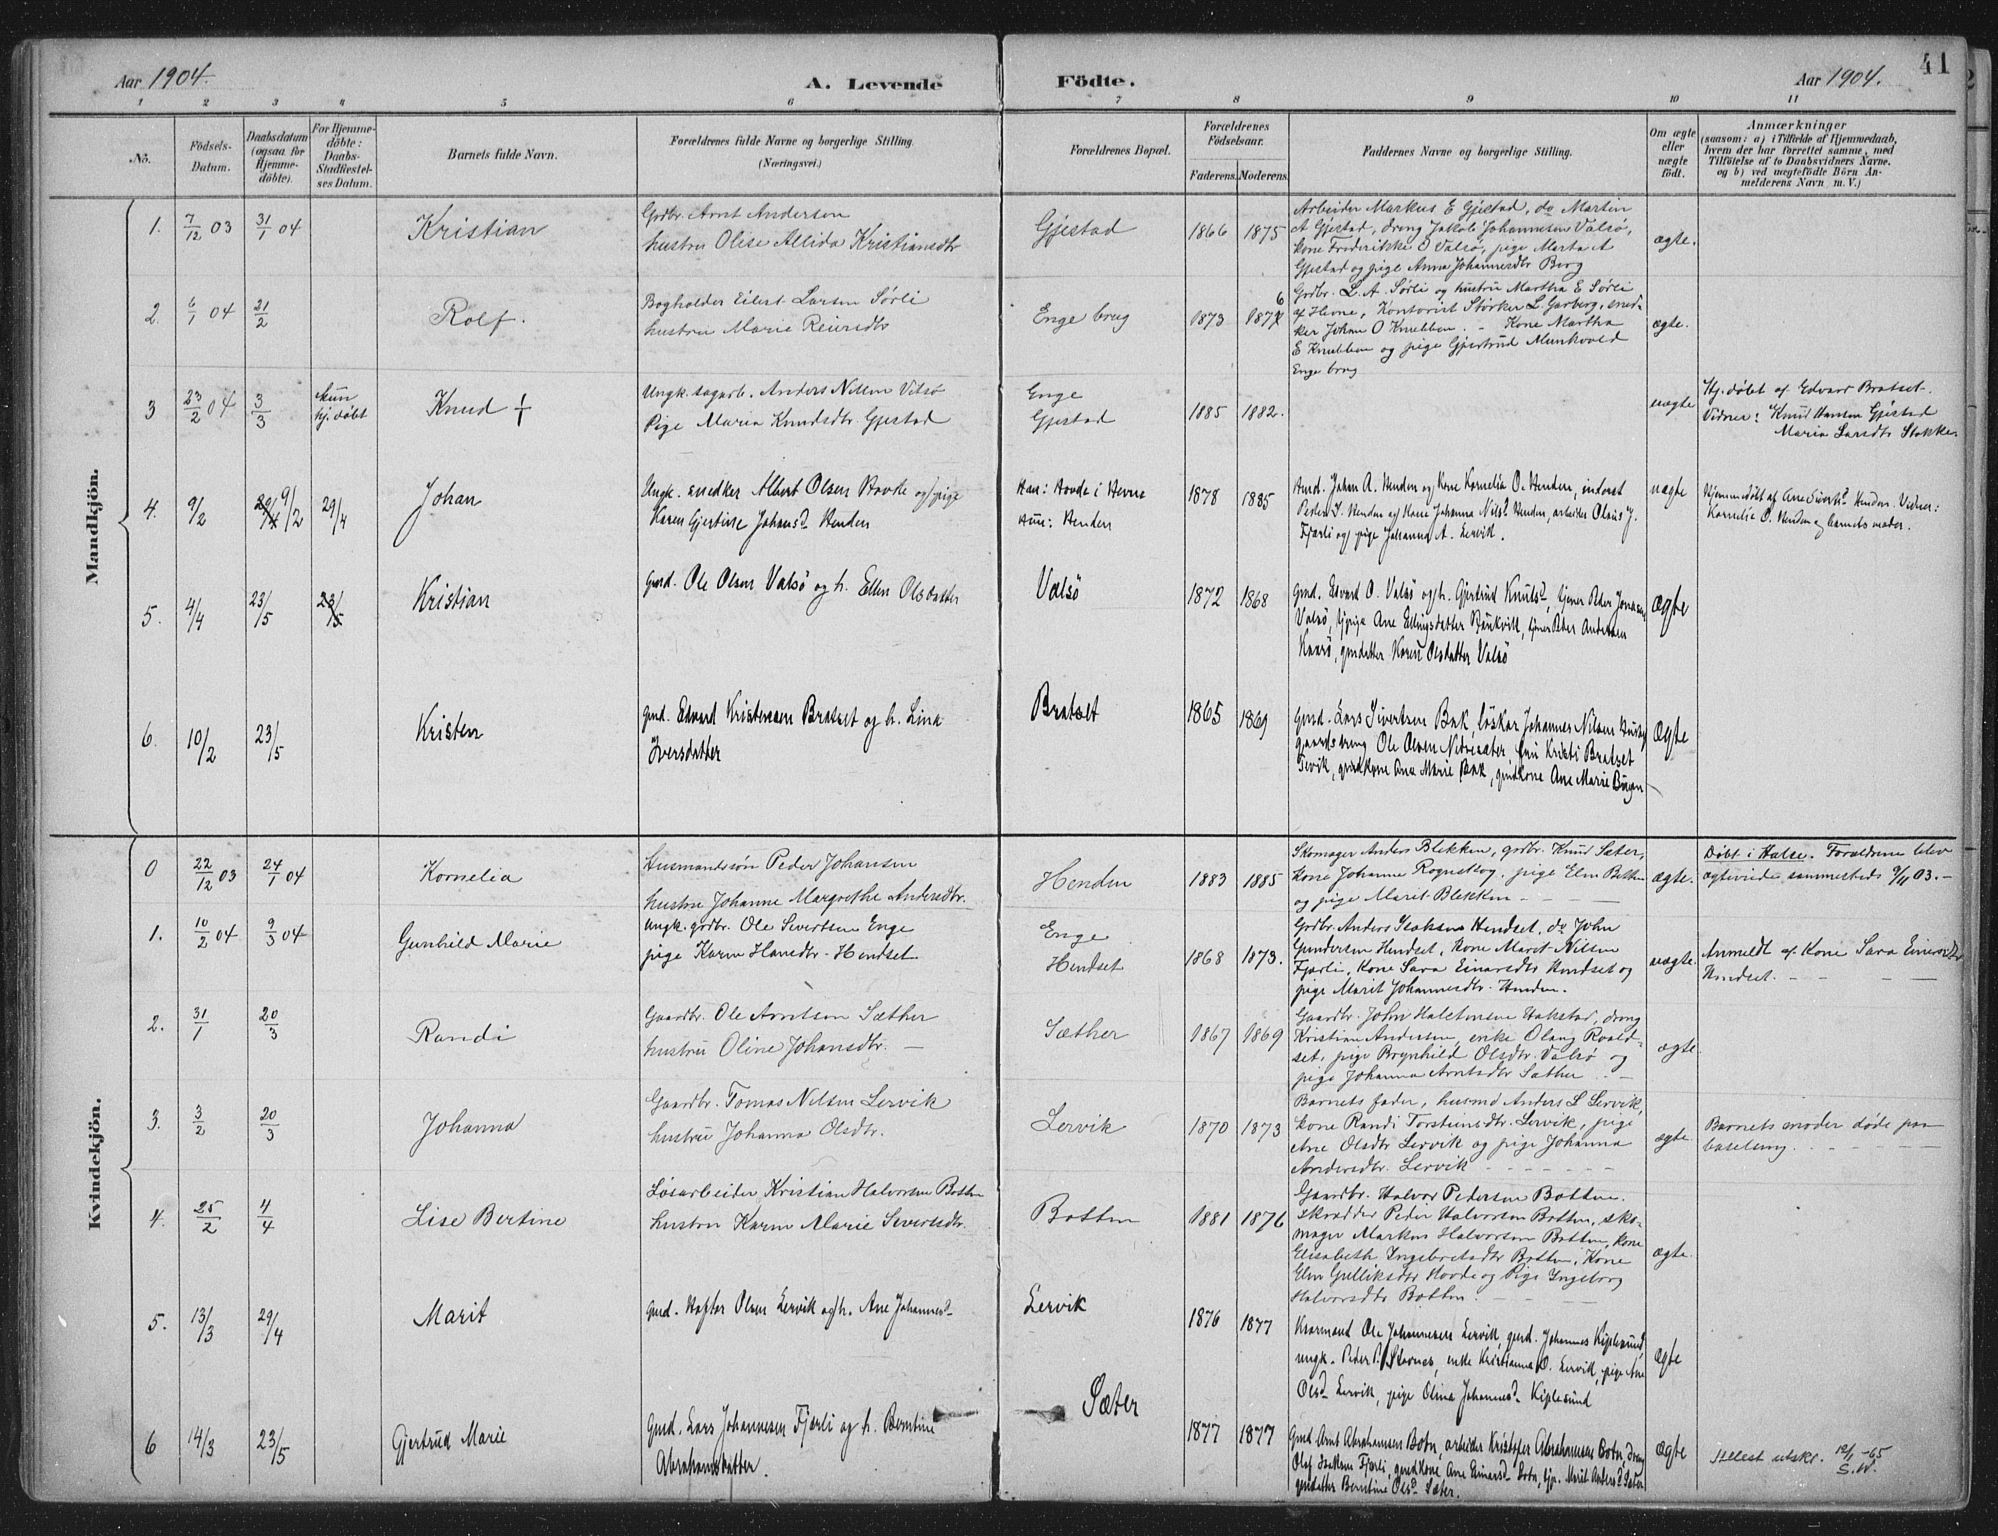 41
Aar 1904.
A. Levende
Födte.
Aar 1904.
1 2 3 4 5 6 7 8 9 10 11
No.
Födsels-
Datum.
Daabsdatum
(ogsaa for
Hjemme-
döbte).
For Hjemme-
döbte:
Daabs-
Stadfæstel-
ses Datum.
Barnets fulde Navn.
Forældrenes fulde Navne og borgerlige Stilling.
(Næringsvei.)
Forældrenes Bopæl.
Forældrenes
Födselsaar.
Faderens. Moderens.
Faddernes Navne og borgerlige Stilling.
Om ægte
eller
uægte
födt.
Anmærkninger
(saasom: a) i Tilfælde af Hjemmedaab,
hvem der har forrettet samme, med
Tilföielse af to Daabsvidners Navne.
og b) ved uægtefödte Börn An-
melderens Navn m. V.)
Mandkjön.
1. 7/12 03 31/1 04 Kristian
Grdbr. Arnt Andersen
hustru Olise Allida Kristiansdtr
Gjestad
1866 1875
Arbeider Markus E Gjestad, do Martin
A Gjestad, dreng Jakob Johannesen Valsø,
kone Frederikke O Valsø, pige Marta A
Gjestad og pige Anna Johannesdtr Berg
ægte.
2. 6/1 04 21/2 Rolf.
Bogholder Eilert Larsen Sørli
hustru Marie Reiersdtr
Enge brug
1873 1876
Grdbr. L. A. Sørli og hustru Martha E Sørli
af Hevne, Kontorist Størker L. Garberg, sned-
ker Johan O Knubben. - Kone Martha
E Knubben og pige Gjertrud Munkvold
Enge brug
ægte.
3 23/2 04 3/3 kun
hj. døbt
Knud +
Ungk. sagarb. Anders Nilsen Valsø
Pige Maria Knudsdtr. Gjestad
Enge
Gjestad
1885 1882.
uægte
Hj. døbt af Edvard Bratset.
Vidner: Knud Hansen Gjestad
Maria Larsdtr Stokke
4. 9/2 29/4 9/2 29/4 Johan
Ungk. snedker Albert Olsen Hovde og pige
Karen Gjertine Johansd. Henden
Han: Hovde i Hevne
Hun: Henden
1878 1885
Gmd. Johan A. Henden og Kone Kornelia O. Henden, inderst
Peder I. Henden og Kone Johanna Nilsd Henden, arbeider Olaus J.
Fjærli og pige Johanna A. Lervik.
uægte
Hjemmedøbt af Ane Sivertsd. Henden. Vidner:
Kornelia O. Henden og barnets moder.
5. 4/4 23/5 23/5 Kristian
Gmd. Ole Olsen Valsø og h. Ellen Olsdatter
Valsø
1872 1868
Gmd. Edvard O. Valsø og h. Gjertrud Knutsd., tjener Peder Jonasen
Valsø, tjpige Ane Ellingsdatter Baukvik, tjener Peter Andersen
Kaarø, gmdatter Karen Olsdatter Valsø
Ægte
6. 10/2 23/5 Kristen
Gmd. Edvard Kristensen Bratset og h. Lina
Iversdatter
Bratset
1865 1869
Gmd. Lars Sivertsen Bak, løskar Johannes Nilsen Husby
gaardsdreng Ole Olsen Nedresæter, fru Kristi Bratset
Tevik, gmdkone Ane Marie Bak, gmdkone Ane Marie Bugen
Ægte
Kvindekjön.
0 22/12 03 24/1 04 Kornelia
Husmandssøn Peder Johansen
hustru Johanne Margrethe Andersdtr.
Henden
1883 1885
Skomager Anders Blekken, grdbr. Knud Sæter,
Kone Johanne Rognskog, pige Elen Botten
og pige Marit Blekken
ægte.
Døbt i Halse. Forældrene blev
ægteviede sammesteds 9/11 03.-
1. 10/2 04 9/3 04 Gunhild Marie
Ungk. grdbr. Ole Sivertsen Enge
pige Karen Hansdtr. Hendset
Enge
Hendset
1868 1873.
Grdbr. Anders Isaksen Hendset, do John
Gundersen Hendset, Kone Maret Nilsen
Fjærli, Kone Sara Einarsdtr Hendset og
pige Marit Johannesdtr. Henden.
uægte.
Anmeldt af Kone Sara Einersdtr
Hendset.
2. 31/1 20/3 Randi
Gaardbr. Ole Arntsen Sæther
hustru Oline Johansdtr.
Sæther
1867 1869
Gaardbr. John Halstensen Hakstad, dreng
Kristian Andersen, enke Olaug Roald-
set, pige Brynhild Olsdtr. Valsø og
pige Johanna Arntsdtr Sæther
ægte.
3. 3/2 20/3 Johanna
Gaardbr. Tomas Nilsen Lervik
hustru Johanna Olsdtr.
Lervik
1870 1873
Barnets fader, husmd Anders L Lervik,
kone Randi Torsteinsdtr. Lervik, pige
Ane Olsdtr Lervik og pige Johanna
Andersdtr. Lervik
ægte.
Barnets moder døde paa
barselseng.
4. 25/2 4/4 Lise Bertine
Løsarbeider Kristian Halvorsen Botten
hustru Karen Marie Sivertsdtr.
Botten
1881 1876
Gaardbr. Halvor Pedersen Botten.
Skrædder Peder Halvorsen Botten, sko-
mager Markus Halvorsen Botten, kone
Elisabeth Ingebretsdtr Botten, Kone
Elen Gulliksdtr Hovde og Pige Ingeborg
Halvorsdtr Botten.
ægte.
5. 13/3 29/4 Marit
Gmd. Haftor Olsen Lervik og h. Ane Johannesd.
Lervik
1876 1877
Kaarmand Ole Johannesen Lervik, gmd. Johannes Kiplesund,
ungk. Peder P. Stavnes, enke Kristianna O. Lervik, pige Ane
Olsd. Lervik, pige Olina Johannesd. Kiplesund
Ægte
6 14/3 23/5 Gjertrud Marie
Gmd. Lars Johannesen Fjærli og h. Berntine
Abrahamsdatter.
Sæter
1877 1877
Gmd Arnt Abrahamsen Botn, arbeider Kristofer Abrahamsen Botn, dreng
Olaf Isaksen Fjærli, gmdkone Ane Einarsd. Botn, tjp. Marit Andersd. Sæter
gmdatter Berntine Olsd. Sæter.
Ægte
Attest utskr. 12/1-65
S.W.